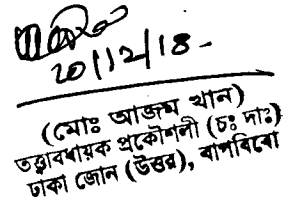 20/12/18-
(মোঃ আজম খান)
তত্ত্বাবধায়ক প্রকৌশলী (চঃ দাঃ)
ঢাকা জোন (উত্তর), বাপবিবো